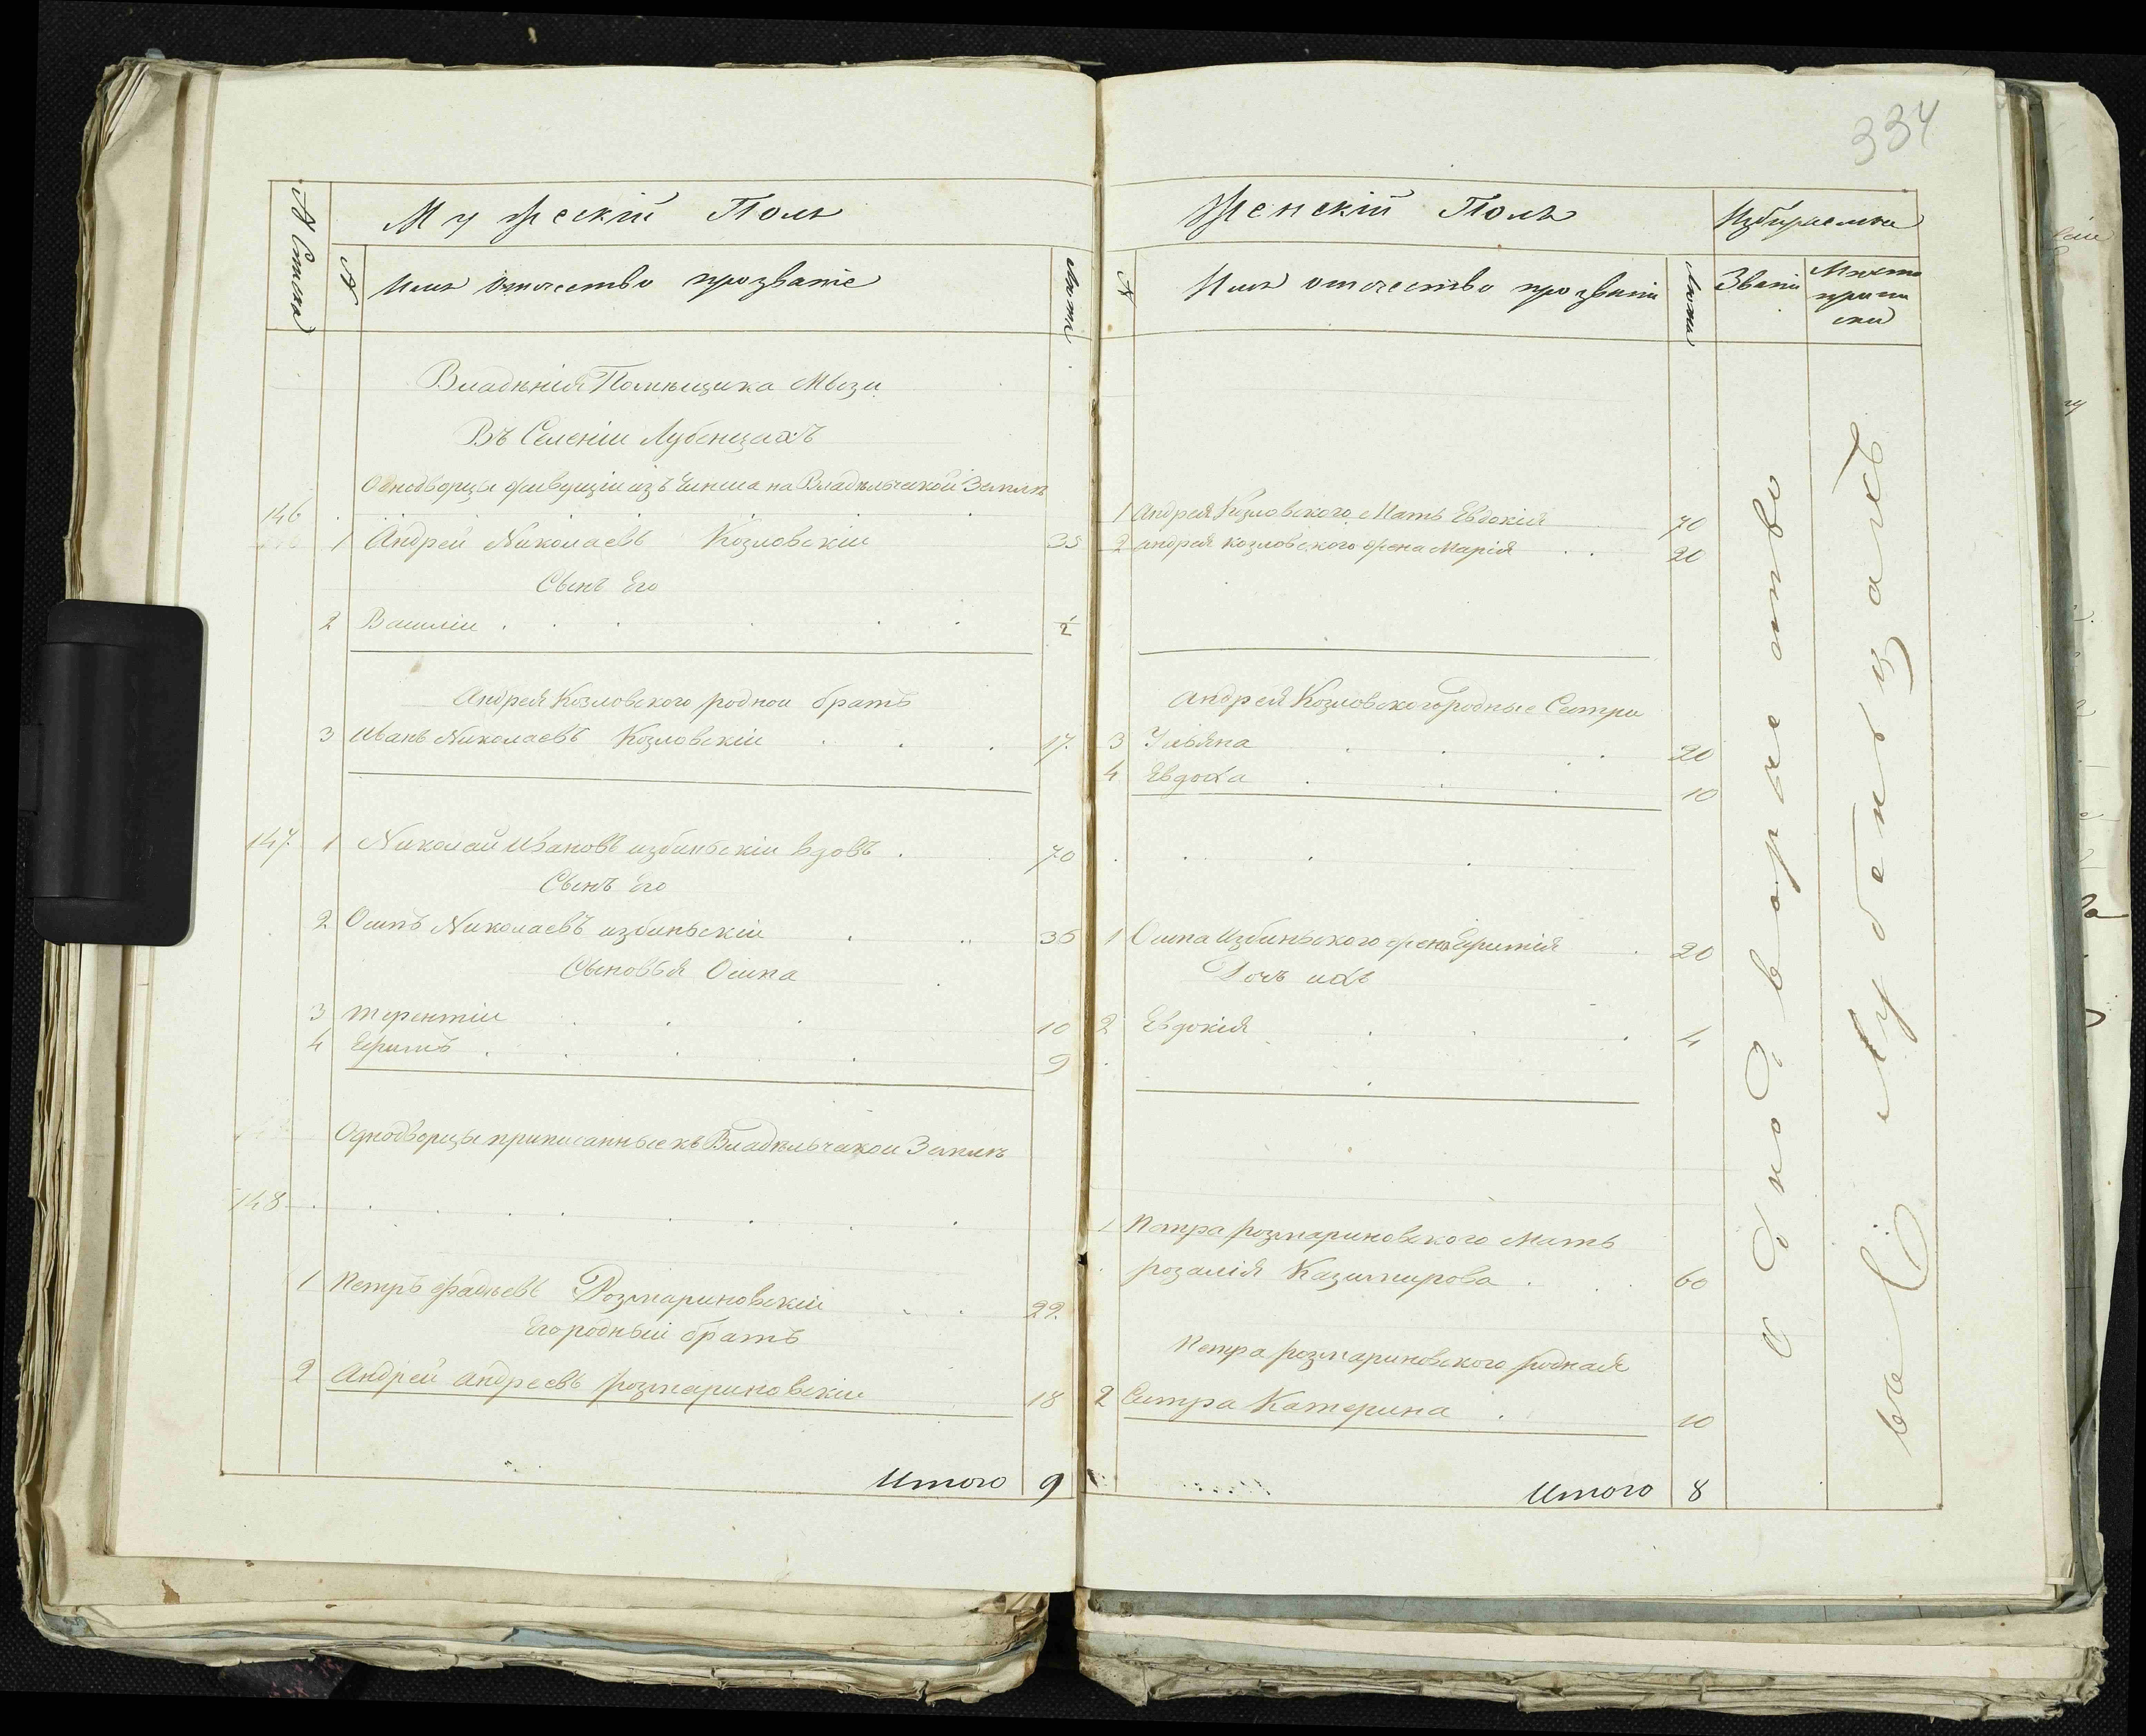 334
№ Списка
Мужескій Полъ
№
Имя отчество прозваніе
Лѣта
Владѣнія Помѣщика Мѣзи
Въ Селеніи Лубенцахъ
Однодворцы живущіи изъ Чинша на Владѣльчакой Землѣ
146
1 Андрей Николаевъ Козловскіи 35
Сынъ Его
2 Василіи 1/2
Андрея Козловского роднои братъ
3 Иванъ Николаевъ Козловскіи 17.
147. 1 Николай Ивановъ избинскіи вдовъ 70
Сынъ Его
2 Осипъ Николаевъ избиньскіи 35
Сыновья Осипа
3 терентіи 10
4 Ефимъ 9
Однодворцы приписанные къ Владѣльчакои Землѣ
148
1 Петръ Фадѣевъ Розмариновскіи 22.
Его родныи братъ
2 Андрей андреевъ розмариновскіи 18
Итого 9
Женскій Полъ
Избираемыя
№
Имя отчество прозваніи
Лѣта
Званіи
Мѣсто
припи
ски
1 Андрея Козловского Мать Евдокія 70
2 андрея козловского жена Марія 20
Андрея Козловского родные Сестри
3 Ульяна 20
4 Евдоха 10
1 Осипа Избиньского жена Ефимія 20
Дочь ихъ
2 Евдокія 4
1 Петра розмариновского Мать
розалія Казимирова 60
Петра розмариновского родная
2 Сестра Катерина 10
Итого 8
Однодворчество
въ С Лубенцахъ